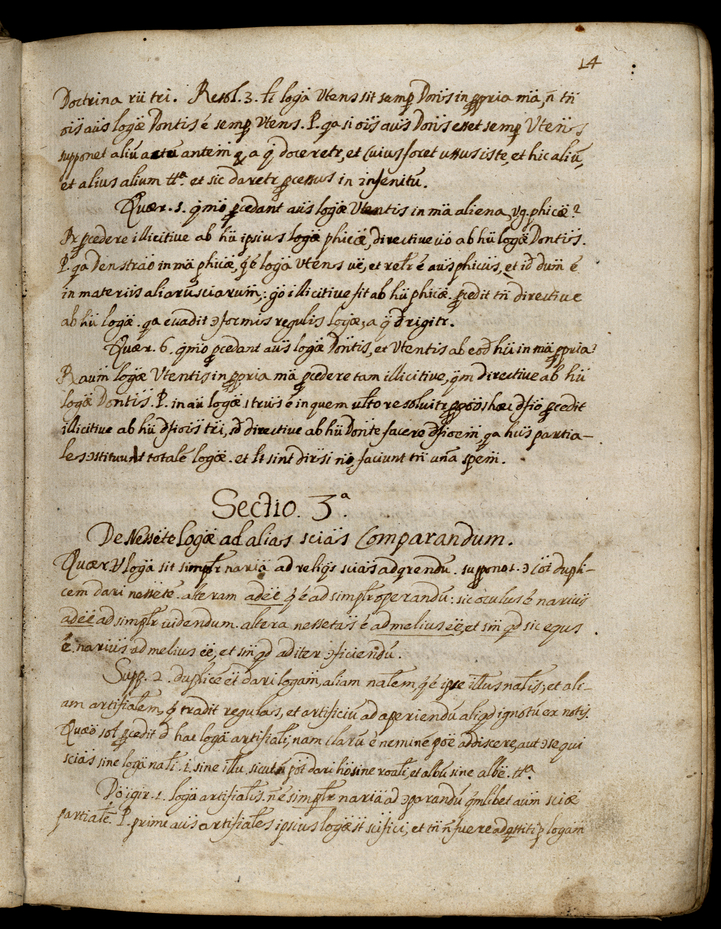 14
Doctrina rũ tri. Resol. 3. ſi logă Utens sit semp Donis in ppria mã, ñ tñ
oĩs aũs logæ Dontis é semp Utens. P. ga si oĩs aũs Donis esset semp Utens
supponet aliũ actũ antem q, a q doceretr, et Cuius foret ussus iste, et hic aliũ,
et alius alium ttª. et sic daretr pcessus in infenitũ.
Quær. 5. qmo pcedant aũs logæ Utentis in mã aliena, vg. phicæ?
Rr pcedere illicitive ab hũ ipsius logæ phicæ, directive vō ab hũ logæ Dontis.
P. ga Denstrão in mã phicæ, q é logă Utens vē, et retr é aũs phicus, et id dum é
in materiis aliarũ sciarum: go illicitive fit ab hũ phicæ pcedit tñ directive
ab hũ logæ. ga evadit ɔformis regulis logæ, a q dirigitr.
Quær. 6. qmo pcedant aũs logæ Dontis, et Utentis ab eod hũ in mã ppria?
R aum logæ Utentis in ppria mã pcedere tam illicitive, qm directive ab hũ
logæ Dontis. P. in aũ logæ strũs é in quem ulto resolvitr hæc dſio pcedit
illicitive ab hũ dſiois tri, sd directive ab hũ Donte facere dſioem, ga hũs partia-
les ɔstituunt totale logæ. et lt sint dirsi no, faciunt tñ unã spem.
Sectio. 3ª.
De Nessete logæ ad alias scias Comparandum.
Quær. V logă sit simplr naria ad reliqs scias adqrendũ. suppono 1. ɔ cōi dupli-
cem dari nessete. alteram ad ēē q é ad simplr operandũ: sic oculus é narius
ad ēē ad simplr videndum. altera nessetas é ad melius ēē, et sm qd sic equs
é narius ad melius ēē, et sm qd ad iter ɔficiendũ.
Supp. 2. duplicē et dari logam, aliam nalem, q é ipse illus nalis, et ali-
am artifialem, q tradit regulas, et artificiũ ad aperiendũ aliqd ignotũ ex notis.
Quæo sol pcedit d hac logæ artifiali; nam clarũ é neminē poē addiscere, aut ɔsequi
scias sine logă nali .i. sine illu, sicut ñ pot dari ho sine roali, et albũ sine albē. ttª.
Do igir. 1. logă artifialis ñ é simplr naria ad ɔparandũ qmlibet aum sciæ
partiale. P. primi aũs artifiales ipsius logæ st scifici, et tñ ñ fuere adqsiti p logam